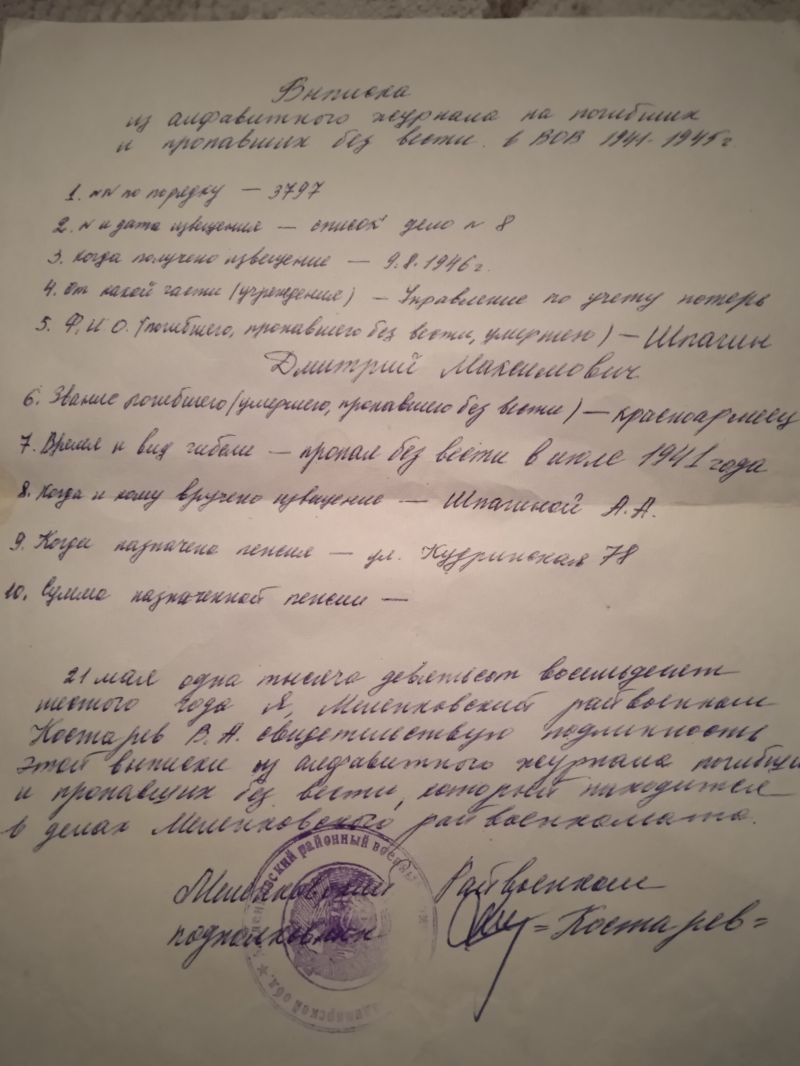 Выписка
из алфавитного журнала на погибших
и пропавших без вести в ВОВ 1941-1945г.
1. NN по порядку — 3797
2. N и дата извещения — список дело N 8
3. Когда получено извещение — 9.8.1946г.
4. От какой части (учреждение) — Управление по учету потерь
5. Ф.И.О. (погибшего, пропавшего без вести, умершего) — Шпагин
Дмитрий Максимович.
6. Звание погибшего (умершего, пропавшего без вести) — красноармеец
7. Время и вид гибели — пропал без вести в июле 1941 года
8. Когда и кому вручено извещение — Шпагиной А.А.
9. Когда назначена пенсия — ул. Кудринская 78
10. Сумма назначенной пенсии —
21 мая одна тысяча девятьсот восемьдесят
шестого года Я, Меленковский райвоенком
Костарев В.А. свидетельствую подлинность
этой выписки из алфавитного журнала погибши
и пропавших без вести, который находится
в делах Меленковского райвоенкомата.
Меленковский Райвоенком
подполковник =Костарев=
районный
обл. ★